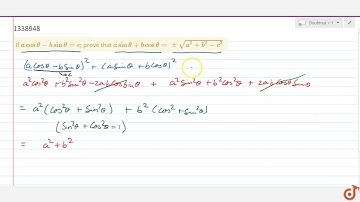 Doubtnut - 1
1338948
If a cos θ − b sin θ = c, prove that a sin θ + b cos θ = ± √(a² + b² − c²)
(a cosθ − b sinθ)² + (a sinθ + b cosθ)²
a²cos²θ + b²sin²θ − 2ab cosθ sinθ + a²sin²θ + b²cos²θ + 2ab cosθ sinθ
= a² (cos²θ + sin²θ) + b² (cos²θ + sin²θ)
(sin²θ + cos²θ = 1)
= a² + b²